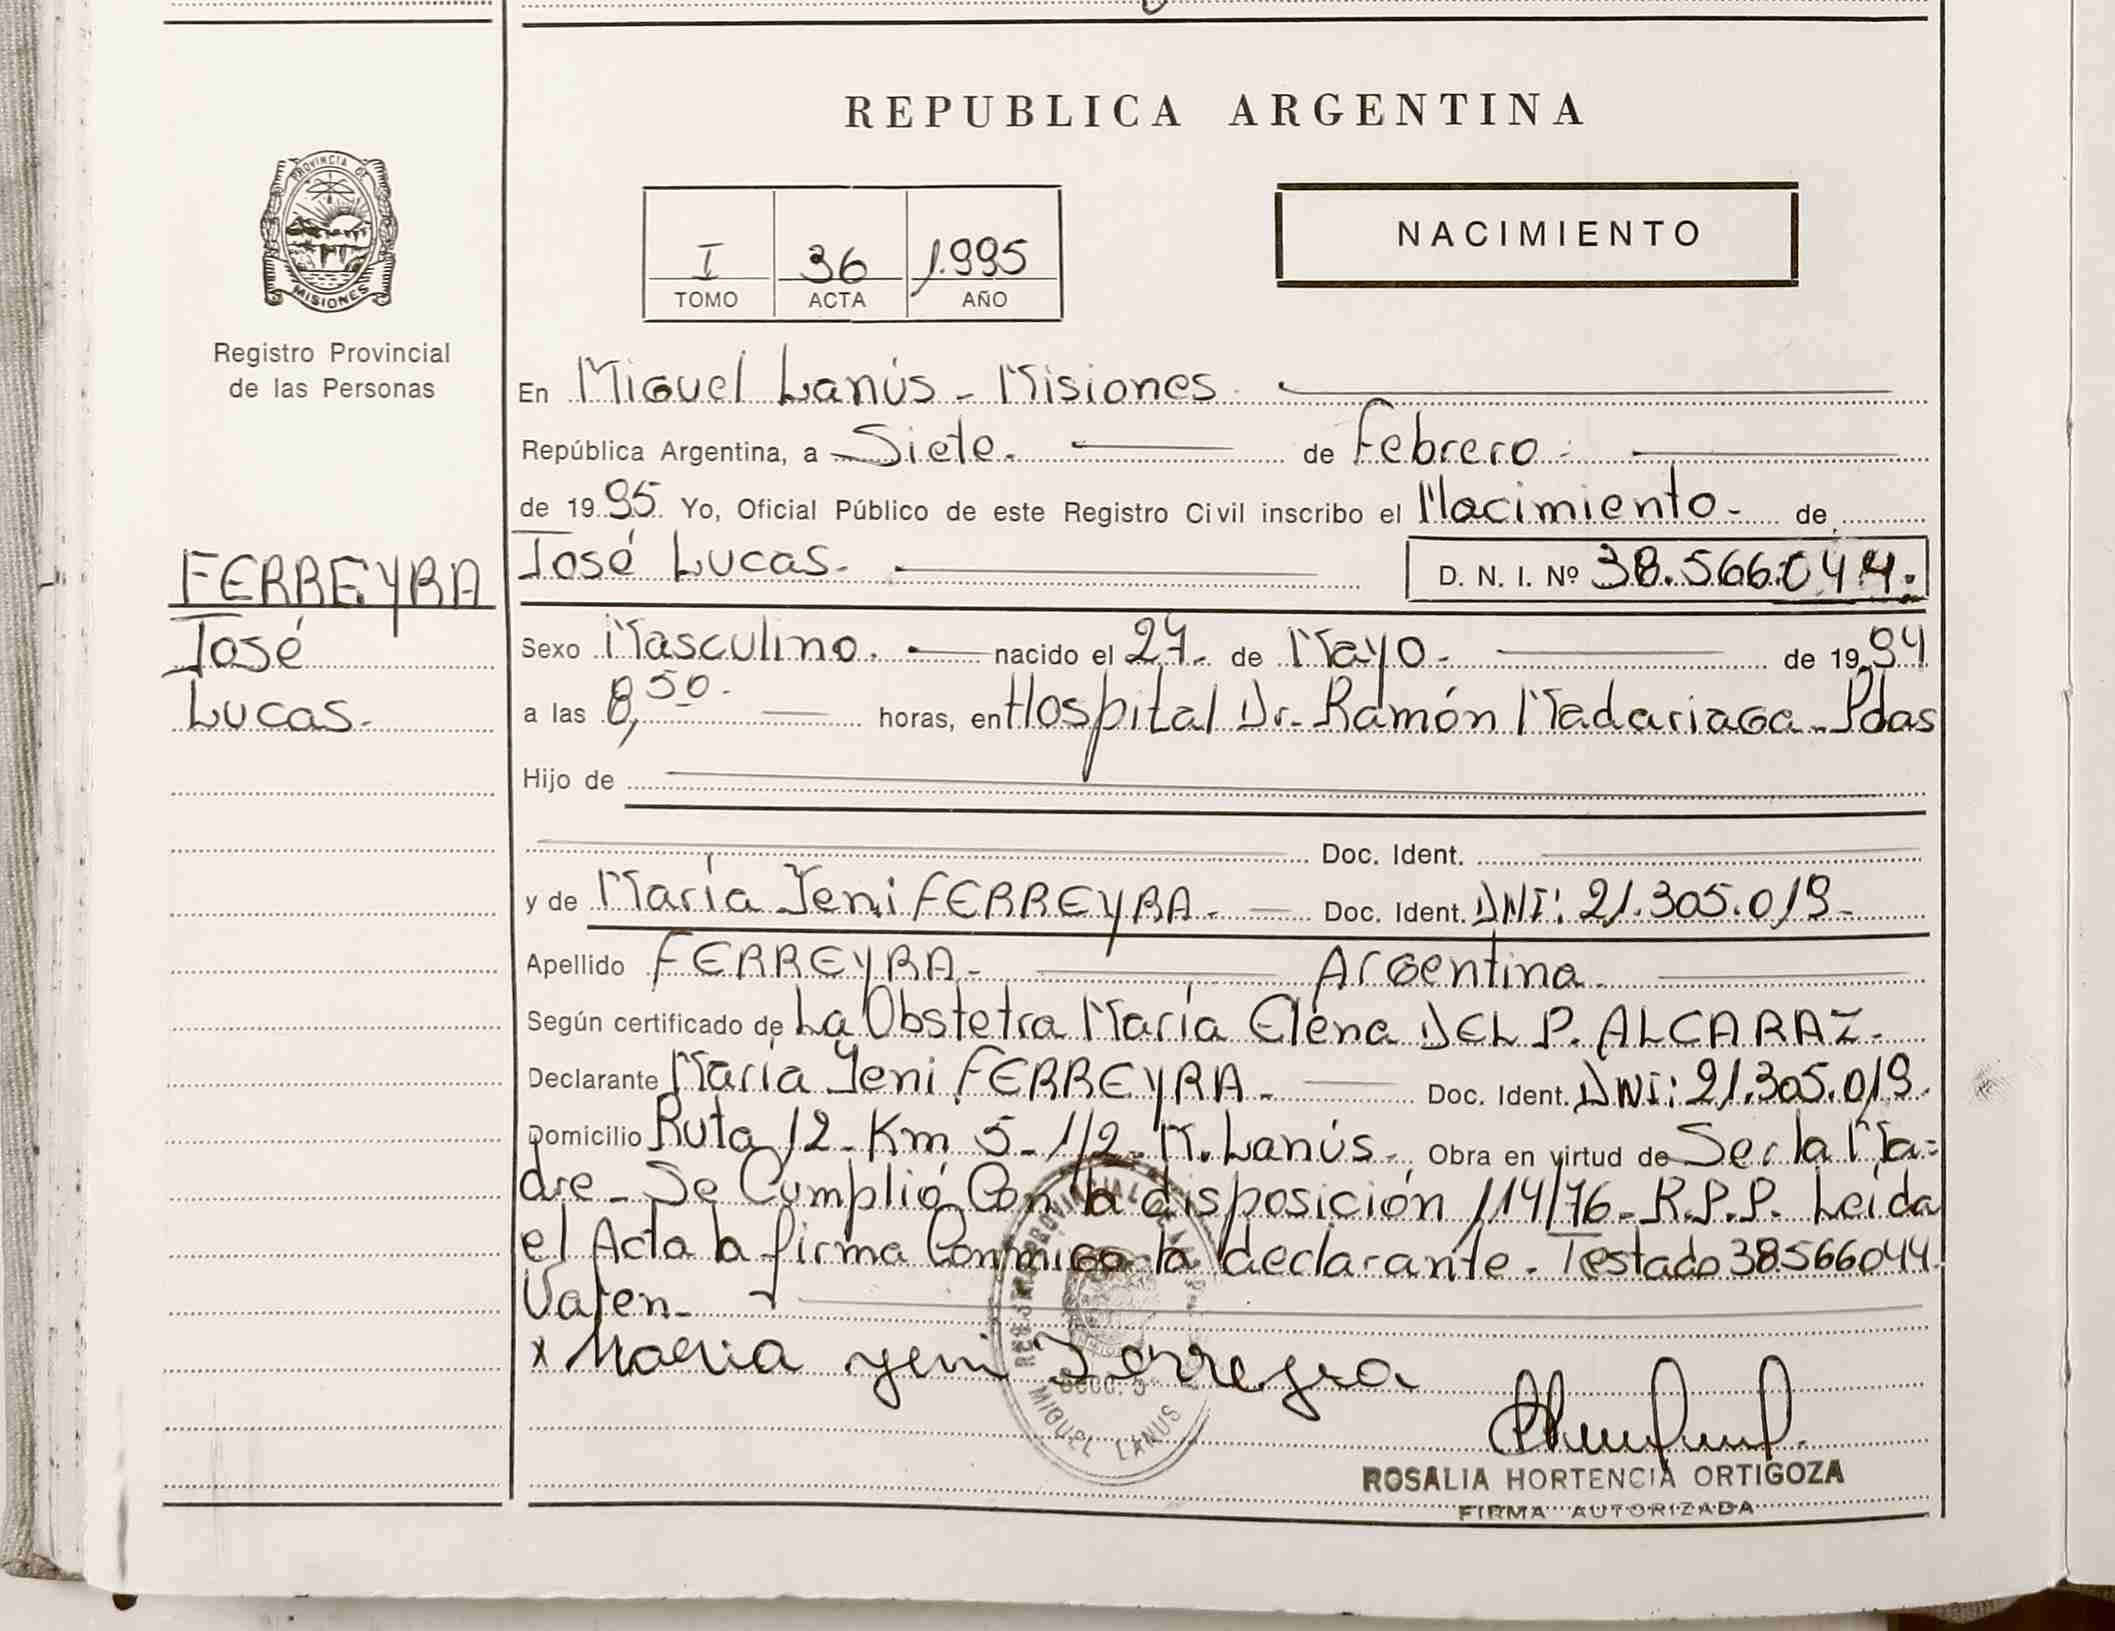 REPUBLICA ARGENTINA
PROVINCIA DE
MISIONES
Registro Provincial
de las Personas
I 36 1.995
TOMO ACTA AÑO
NACIMIENTO
En Miguel Lanús - Misiones
República Argentina, a Siete. de Febrero
de 1995 Yo, Oficial Público de este Registro Civil inscribo el Nacimiento - de
FERREYRA
José
Lucas.
José Lucas. D. N. I. Nº 38.566.044.
Sexo Masculino. nacido el 27 de Mayo de 1994
a las 8,50 horas, en Hospital Dr. Ramón Madariaga - Pdas
Hijo de
Doc. Ident.
y de María Yeni FERREYRA. Doc. Ident. DNI: 21.305.019.
Apellido FERREYRA. Argentina
Según certificado de La Obstetra María Elena DEL P. ALCARAZ.
Declarante María Yeni FERREYRA. Doc. Ident. DNI: 21.305.019.
Domicilio Ruta 12 - Km 5 - 1/2 - M. Lanús. Obra en virtud de Ser la Ma=
dre - Se Cumplió Con la disposición 114/76 - R.P.P. Leida
el Acta la firma Conmigo la declarante. Testado 38566044
Valen -
x Maria yeni Ferreyra
MIGUEL LANUS
ROSALIA HORTENCIA ORTIGOZA
FIRMA AUTORIZADA